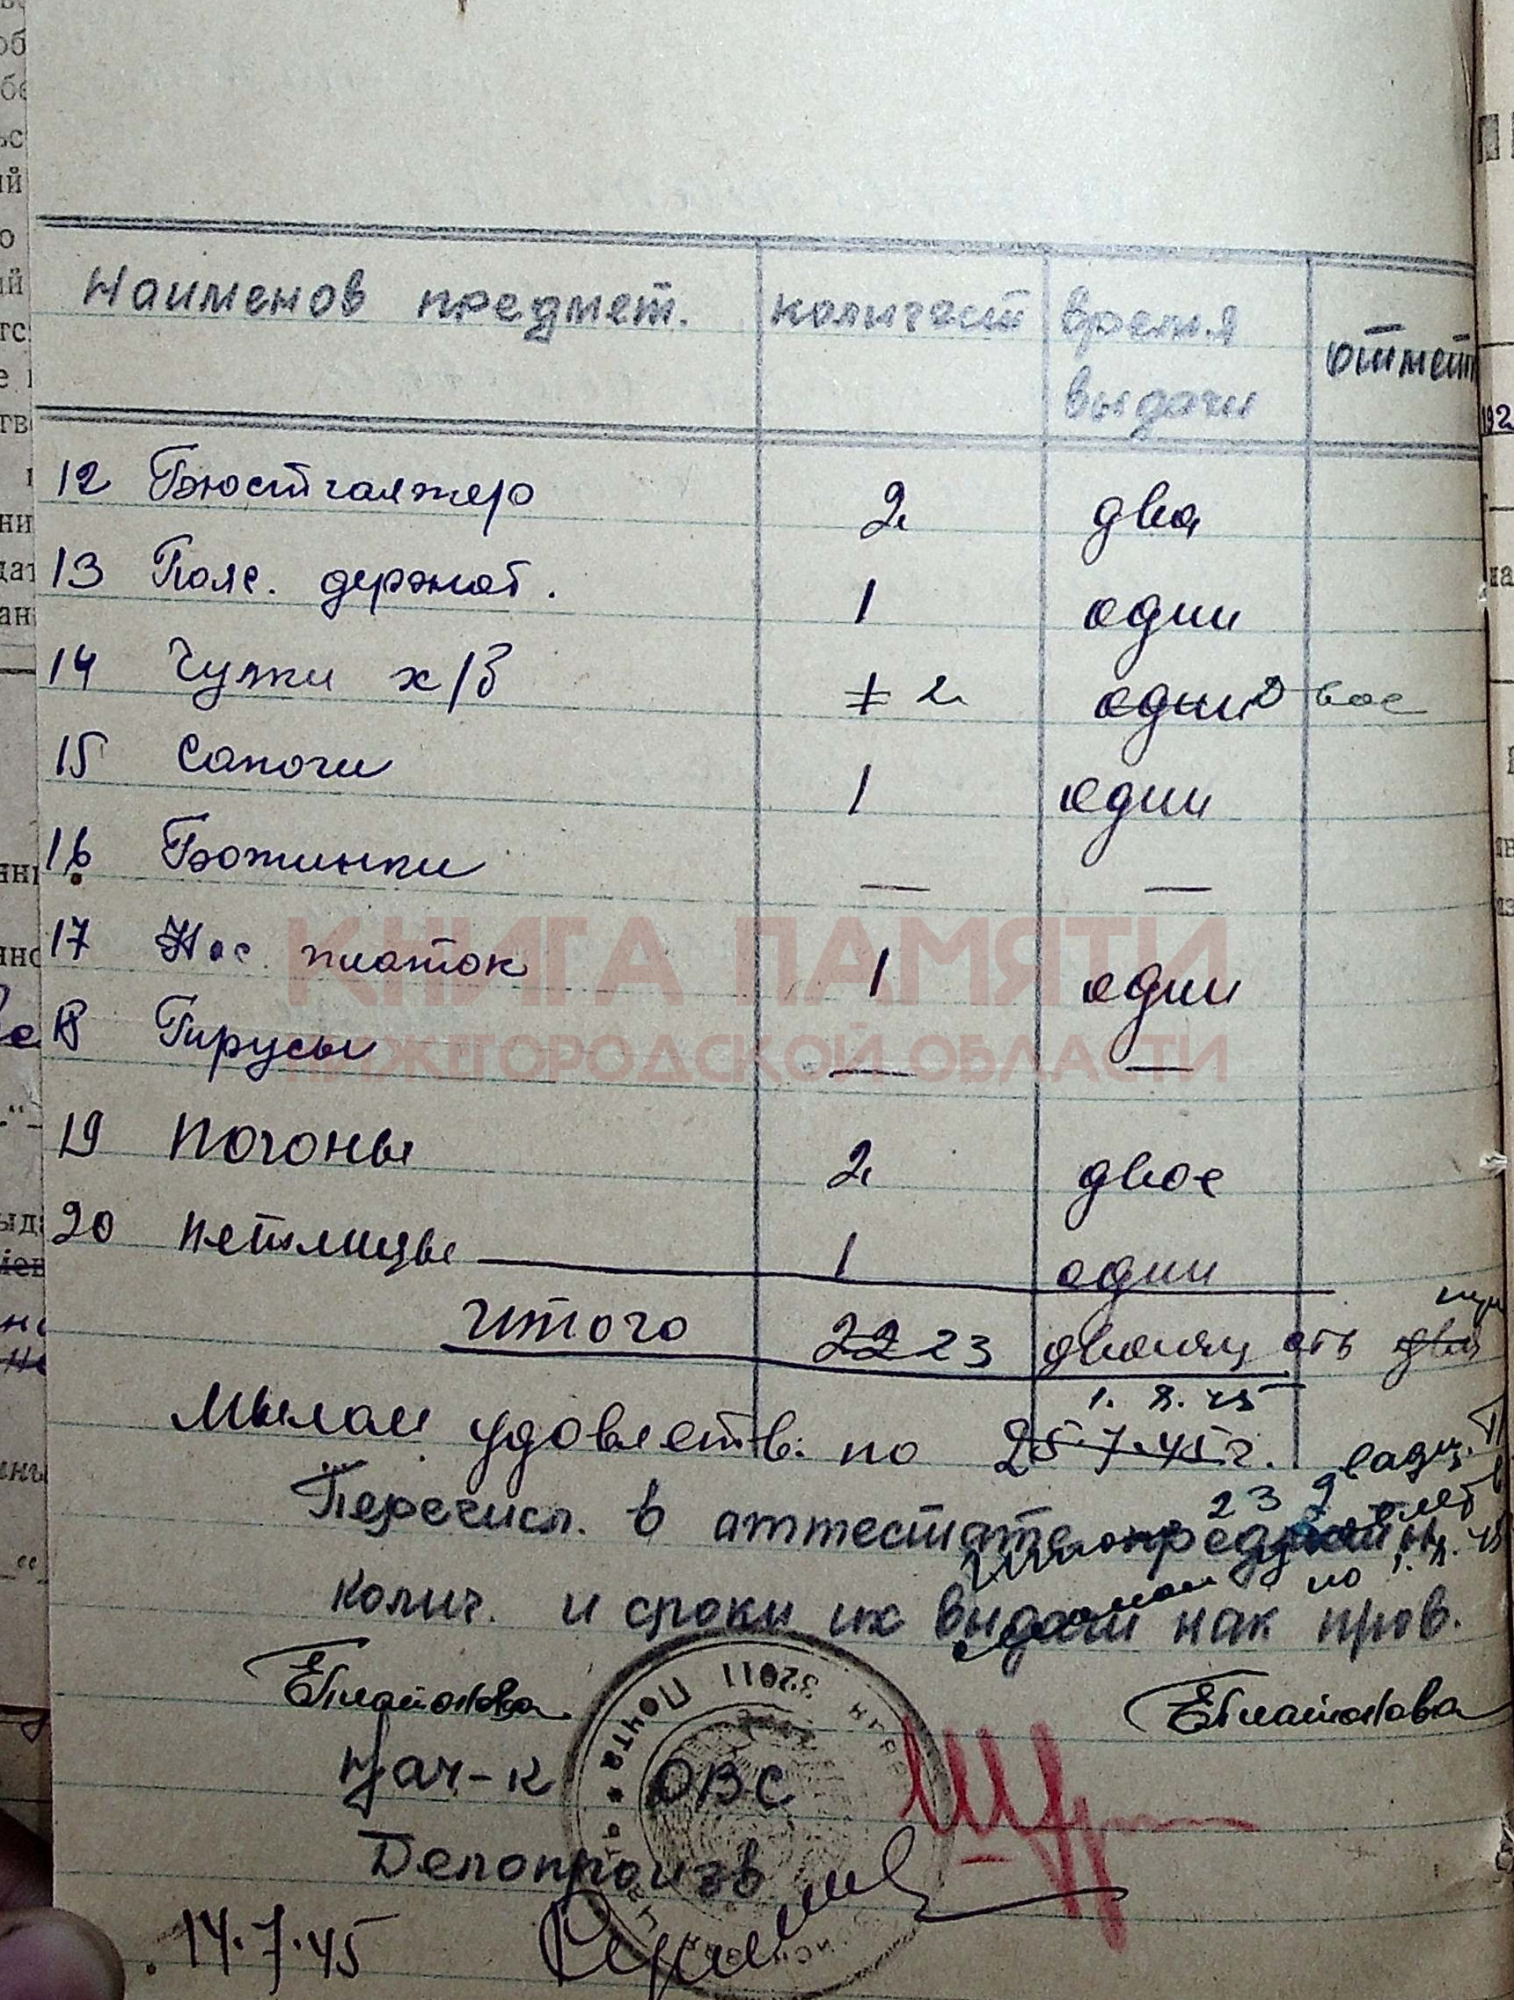 Наименов предмет. количест время выдачи отмет
12 Бюстгалтер 2 два
13 Пояс. держат. 1 один
14 Чулки х/б 1 2 один Двое
15 Сапоги 1 один
16 Ботинки — —
17 Нос. платок 1 один
КНИГА ПАМЯТИ
18 Гирусы — —
НИЖЕГОРОДСКОЙ ОБЛАСТИ
19 Погоны 2 двое
20 Петлицы 1 один
Итого 22 23 двадцать два
1. 8. 45
Мылом удовлетв. по 25.7.45 г.
23
Перечисл. в аттестате предметы
по 1. 8. 45
колич. и сроки их выдачи нак пров.
ЕПлатонова ЕПлатонова
32011 Почта
Нач-к ОВС
Делопроизв
14.7.45